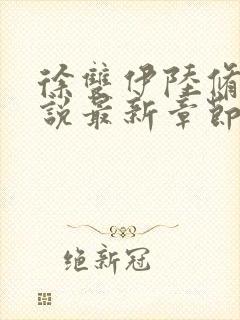 徐雙伊陸脩
說最新章節
绝新冠